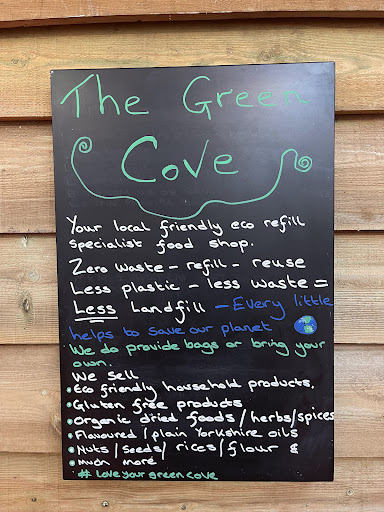 The Green
Cove
Your local friendly eco refill
specialist food shop.
Zero waste - refill - reuse
Less plastic - less waste =
Less landfill - Every little
helps to save our planet
We do provide bags or bring your
own.
We sell
• Eco friendly household products.
• Gluten free products
• Organic dried foods / herbs/spices
• Flavoured / plain Yorkshire oils
• Nuts / Seeds / rices / flour &
• much more
# love your green cove